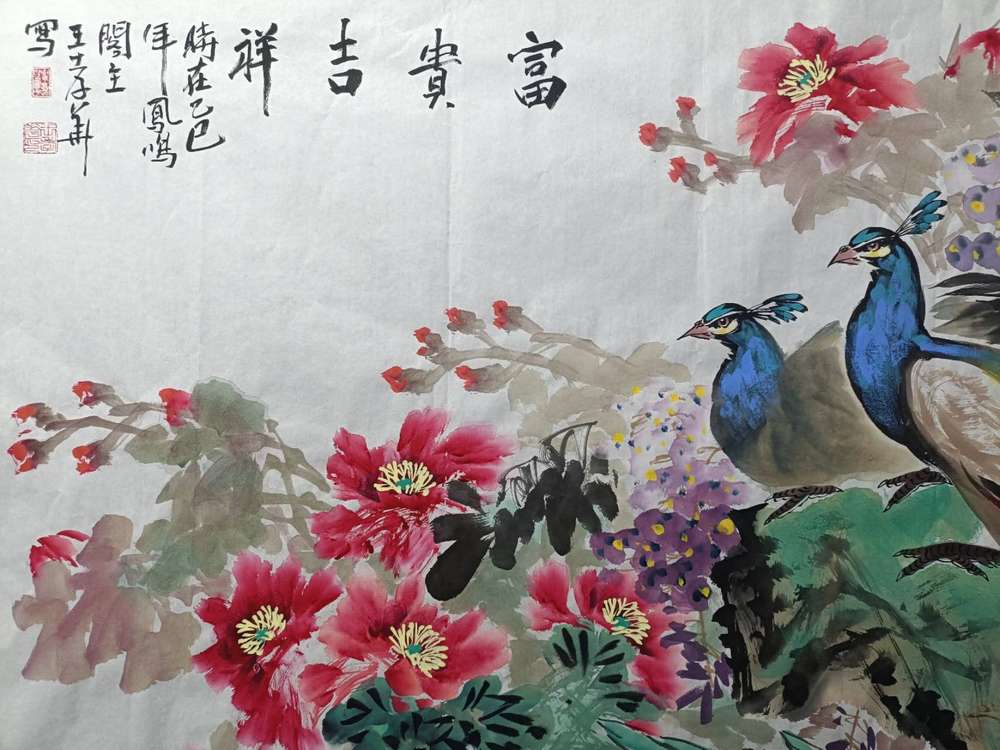 富貴吉祥
時在乙巳
年鳳鳴
閣主
王士華
寫